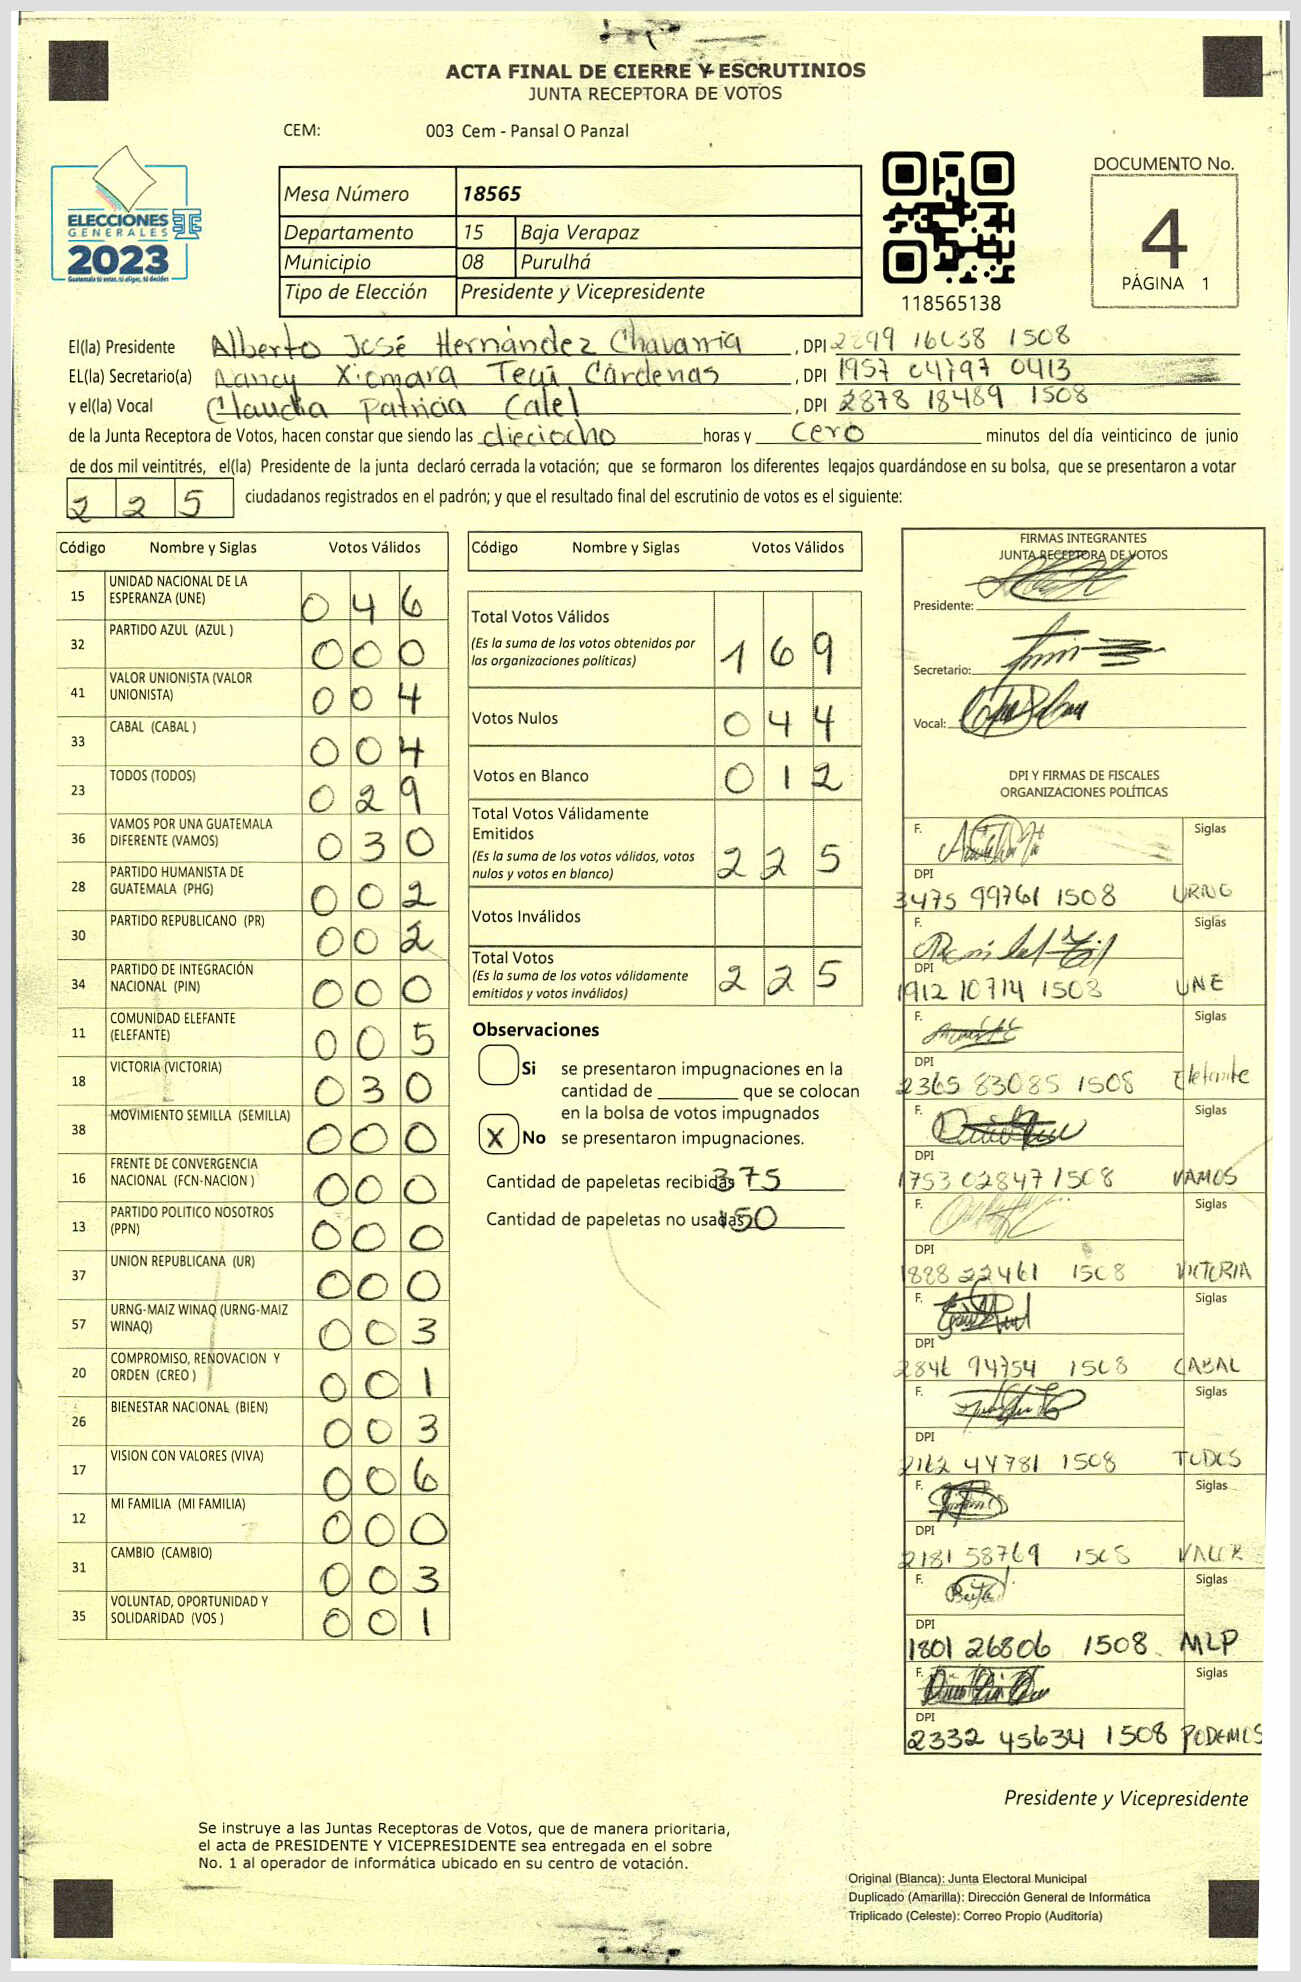 ACTA FINAL DE CIERRE Y ESCRUTINIOS
JUNTA RECEPTORA DE VOTOS
CEM: 003 Cem - Pansal O Panzal
DOCUMENTO No.
4
PÁGINA 1
ELECCIONES
GENERALES
2023
Guatemala tú votas, tú eliges, tú decides
Mesa Número 18565
Departamento 15 Baja Verapaz
Municipio 08 Purulhá
Tipo de Elección Presidente y Vicepresidente
118565138
El(la) Presidente Alberto José Hernández Chavarria, DPI 2899 16638 1508
EL(la) Secretario(a) Nancy Xiomara Teni Cárdenas, DPI 1957 04797 0413
y el(la) Vocal Claudia Patricia Calel, DPI 2878 18489 1508
de la Junta Receptora de Votos, hacen constar que siendo las dieciocho horas y cero minutos del día veinticinco de junio
de dos mil veintitrés, el(la) Presidente de la junta declaró cerrada la votación; que se formaron los diferentes legajos guardándose en su bolsa, que se presentaron a votar
225 ciudadanos registrados en el padrón; y que el resultado final del escrutinio de votos es el siguiente:
Código Nombre y Siglas Votos Válidos
15 UNIDAD NACIONAL DE LA ESPERANZA (UNE) 046
32 PARTIDO AZUL (AZUL ) 000
41 VALOR UNIONISTA (VALOR UNIONISTA) 004
33 CABAL (CABAL ) 004
23 TODOS (TODOS) 029
36 VAMOS POR UNA GUATEMALA DIFERENTE (VAMOS) 030
28 PARTIDO HUMANISTA DE GUATEMALA (PHG) 002
30 PARTIDO REPUBLICANO (PR) 002
34 PARTIDO DE INTEGRACIÓN NACIONAL (PIN) 000
11 COMUNIDAD ELEFANTE (ELEFANTE) 005
18 VICTORIA (VICTORIA) 030
38 MOVIMIENTO SEMILLA (SEMILLA) 000
16 FRENTE DE CONVERGENCIA NACIONAL (FCN-NACION ) 000
13 PARTIDO POLITICO NOSOTROS (PPN) 000
37 UNION REPUBLICANA (UR) 000
57 URNG-MAIZ WINAQ (URNG-MAIZ WINAQ) 003
20 COMPROMISO, RENOVACION Y ORDEN (CREO ) 001
26 BIENESTAR NACIONAL (BIEN) 003
17 VISION CON VALORES (VIVA) 006
12 MI FAMILIA (MI FAMILIA) 000
31 CAMBIO (CAMBIO) 003
35 VOLUNTAD, OPORTUNIDAD Y SOLIDARIDAD (VOS ) 001
Código Nombre y Siglas Votos Válidos
Total Votos Válidos
(Es la suma de los votos obtenidos por
las organizaciones políticas) 169
Votos Nulos 044
Votos en Blanco 012
Total Votos Válidamente
Emitidos
(Es la suma de los votos válidos, votos
nulos y votos en blanco) 225
Votos Inválidos
Total Votos
(Es la suma de los votos válidamente
emitidos y votos inválidos) 225
Observaciones
Si se presentaron impugnaciones en la
cantidad de ________ que se colocan
en la bolsa de votos impugnados
X No se presentaron impugnaciones.
Cantidad de papeletas recibidas 375
Cantidad de papeletas no usadas 150
FIRMAS INTEGRANTES
JUNTA RECEPTORA DE VOTOS
Presidente:
Secretario:
Vocal:
DPI Y FIRMAS DE FISCALES
ORGANIZACIONES POLÍTICAS
F. Siglas
DPI
3475 99761 1508 URNG
F. Siglas
DPI
1912 10714 1508 UNE
F. Siglas
DPI
2365 83085 1508 Elefante
F. Siglas
DPI
1753 02847 1508 VAMOS
F. Siglas
DPI
1888 22461 1508 VICTORIA
F. Siglas
DPI
2846 94754 1508 CABAL
F. Siglas
DPI
2162 44781 1508 TODOS
F. Siglas
DPI
2181 58769 1508 VALOR
F. Siglas
DPI
1801 26806 1508 MLP
F. Siglas
DPI
2332 45634 1508 PODEMOS
Presidente y Vicepresidente
Se instruye a las Juntas Receptoras de Votos, que de manera prioritaria,
el acta de PRESIDENTE Y VICEPRESIDENTE sea entregada en el sobre
No. 1 al operador de informática ubicado en su centro de votación.
Original (Blanca): Junta Electoral Municipal
Duplicado (Amarilla): Dirección General de Informática
Triplicado (Celeste): Correo Propio (Auditoría)